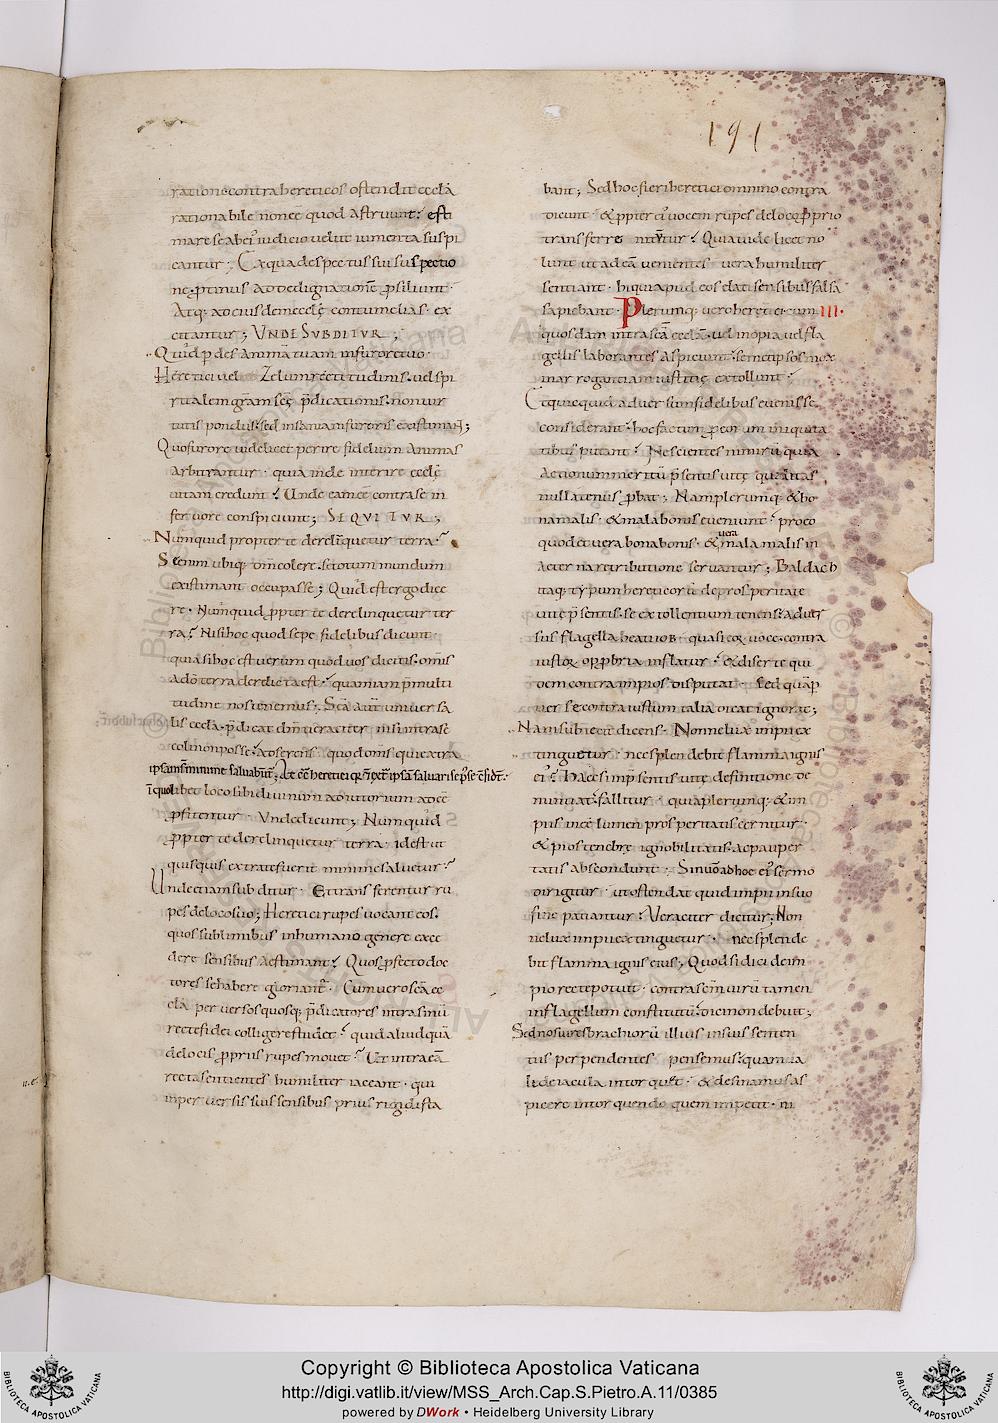 191
ratione contra hereticos ostendit eccla
rationabile non eē quod astruunt; esti
mare se ab eis iudicio uelut iumenta suspi
cantur; Ex qua despectus sui suspectio
ne ptinus ad dedignationē psiliunt
Atq; ad eius dem ecclę contumelias ex
citantur; UNDE SUBDITUR;
Quid pdes animā tuam in furore tuo.
Heretici uel Zelum rectitudinis uel spi
ritalem gram scę pdicationis non uir
tutis pondus sed insaniam furoris existimant;
Quo furore uidelicet perire fidelium animas
arbitrantur quia inde interire ecclę
uitam credunt; Unde eam eē contra se in
feruore conspiciunt; SEQUITUR;
Numquid propter te derelinquetur terra?
Se enim ubiq; dm colere se totum mundum
existimant occupasse; Quid est ergo dice
re. Numquid ppter te derelinquetur ter
ra? Nisi hoc quod sepe fidelibus dicunt
quia si hoc est uerum quod uos dicitis omis
a dō terra derelicta est quam iam p multi
tudine nos tenemus; Scā aut uniuersa
lis eccla pdicat dm ueraciter nisi intra se
coli non posse adserens quod oms qui extra
ipsam sunt minime saluabunt; At
in quolibet loco sibi diuinum adiutorium adeē
pfitentur Unde dicunt; Numquid
ppter te derelinquetur terra. id est ut
quisquis extra te fuerit minime saluetur?
Unde etiam subditur. Et transferentur ru
pes de loco suo; Heretici rupes uocant eos
quos sublimibus in humano genere exce
dere sensibus aestimant; Quos pfecto doc
tores se habere gloriantr. Cum uero scā ec
cla peruersos quosq; pdicatores intra sinū
recte fidei colligere studet? quid aliud quā
de locis ppriis rupes mouet? Ut intra eā
recta sentientes humiliter iaceant. qui
in peruersis suis sensibus prius rigidi sta
bant; Sed hoc fieri heretici omnino contra
dicunt & ppter eius uocem rupes de loco pprio
transferre nituntur; Quia uidelicet no
lunt ut ad eā uenientes uera humiliter
sentiant. hi qui apud eos elati sensibus falsa
sapiebant. Plerumq; uero heretici cum III.
quosdam intra scā ecclā uel inopia uel fla
gellis laborantes aspiciunt. semetipsos mox
in arrogantiam iustitię extollunt;
Et quicquid aduersum fidelibus euenisse
considerant. hoc factum p eorum iniquita
tibus putant; Nescientes nimirū quia
actionum meritū psentis uitę qualitas
nullatenus pbat; Nam plerumq; & bo
na malis. & mala bonis eueniunt? pro eo
quod et uera bona bonis. & uera mala malis in
aeterna retributione seruantur; Baldad h
itaq; typum hereticorū de prosperitate
uitę psentis se extollentium tenens aduer
sus flagella beati iob. quasi eor uoce contra
iustor opprobria inflatur; & diserte qui
dem contra impios disputat. Sed quā p
uerse contra iustum talia dicat ignorat;
Nam subiecit dicens. Nonne lux impii ex
tinguetur nec splendebit flamma ignis
eius; Haec si in psentis uitę defintione de
nuntiat. fallitur. quia plerumq; & im
piis inēe lumen prosperitatis cernitur
& pios tenebrę ignobilitatis ac pauper
tatis abscondunt; Sin uō ad hoc eius sermo
dirigitur ut ostendat quid impii in suo
fine patiantur? Veraciter dicitur; Non
ne lux impii extinguetur. nec splende
bit flamma ignis eius; Quod si dici de im
pio recte potuit. contra scm uirū tamen
in flagellum constitutū dici non debuit;
Sed nos uires brachiorū illius in suis senten
tiis perpendentes pensemus quam ua
lide iacula intorquet. & desinamus as
picere intorquendo quem impetit. ni
Copyright © Biblioteca Apostolica Vaticana
http://digi.vatlib.it/view/MSS_Arch.Cap.S.Pietro.A.11/0385
powered by DWork • Heidelberg University Library